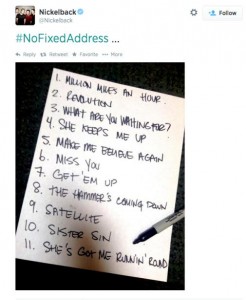 Nickelback
@Nickelback
Follow
#NoFixedAddress ...
Reply Retweet Favorite More
1. MILLION MILE'S AN HOUR.
2. REVOLUTION
3. WHAT ARE YOU WAITING FOR?
4. SHE KEEPS ME UP
5. MAKE ME BELIEVE AGAIN
6. MISS YOU
7. GET 'EM UP
8. THE HAMMER'S COMING DOWN
9. SATELLITE
10. SISTER SIN
11. SHE'S GOT ME RUNNIN' ROUND